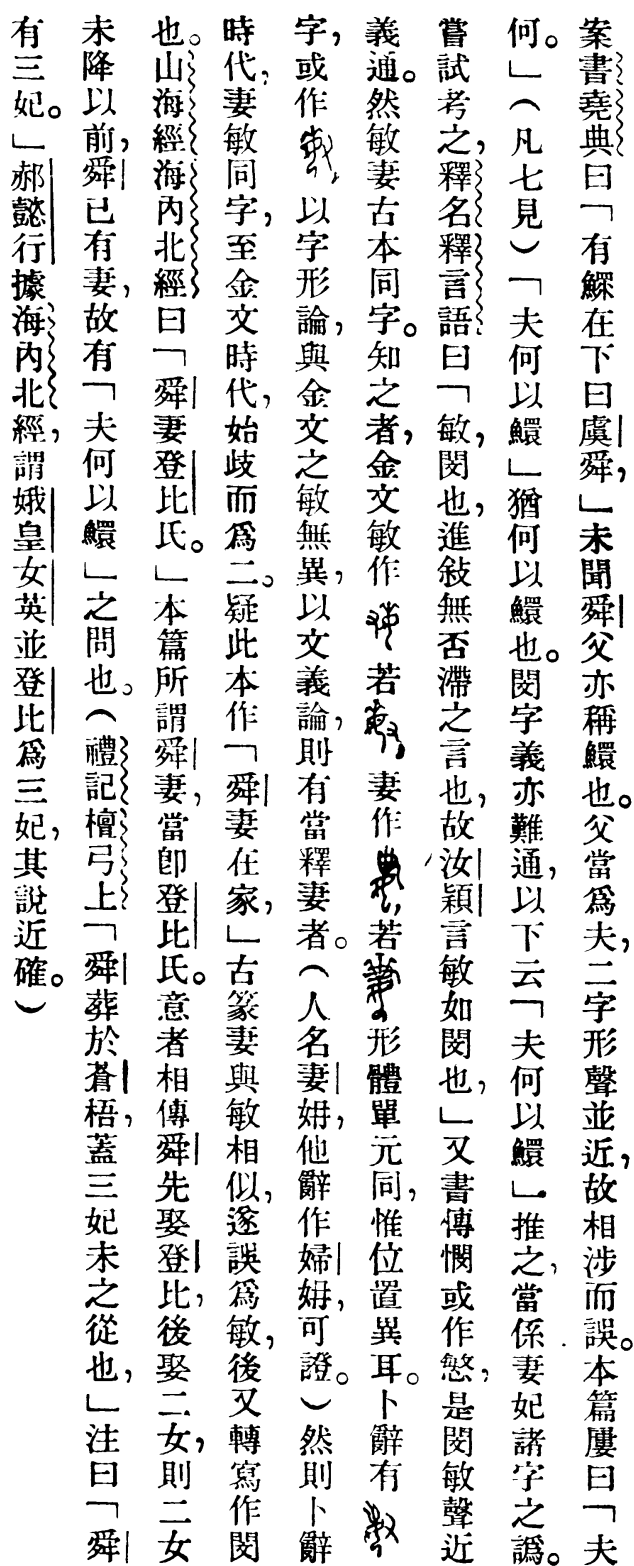 案書堯典曰「有鰥在下曰虞舜，」未聞舜父亦稱鱞也。父當爲夫，二字形聲並近，故相涉而誤。本篇屢曰「夫
何。」（凡七見）「夫何以鱞」猶何以鱞也。閔字義亦難通，以下云「夫何以鱞」推之，當係妻妃諸字之譌。
嘗試考之，釋名釋言語曰「敏，閔也，進敍無否滯之言也，故汝潁言敏如閔也，」又書傳憫或作慜，是閔敏聲近
義通。然敏妻古本同字。知之者，金文敏作 若 妻作 若 形體單元同，惟位置異耳。卜辭有
字，或作 以字形論，與金文之敏無異，以文義論，則有當釋妻者。（人名妻姌，他辭作婦姌，可證。）然則卜辭
時代，妻敏同字，至金文時代，始歧而爲二。疑此本作「舜妻在家，」古篆妻與敏相似，遂誤爲敏，後又轉寫作閔
也。山海經海內北經曰「舜妻登比氏。」本篇所謂舜妻，當卽登比氏。意者相傳舜先娶登比，後娶二女，則二女
未降以前，舜已有妻，故有「夫何以鱞」之問也。（禮記檀弓上「舜葬於蒼梧，蓋三妃未之從也，」注曰「舜
有三妃。」郝懿行據海內北經，謂娥皇女英並登比爲三妃，其說近確。）